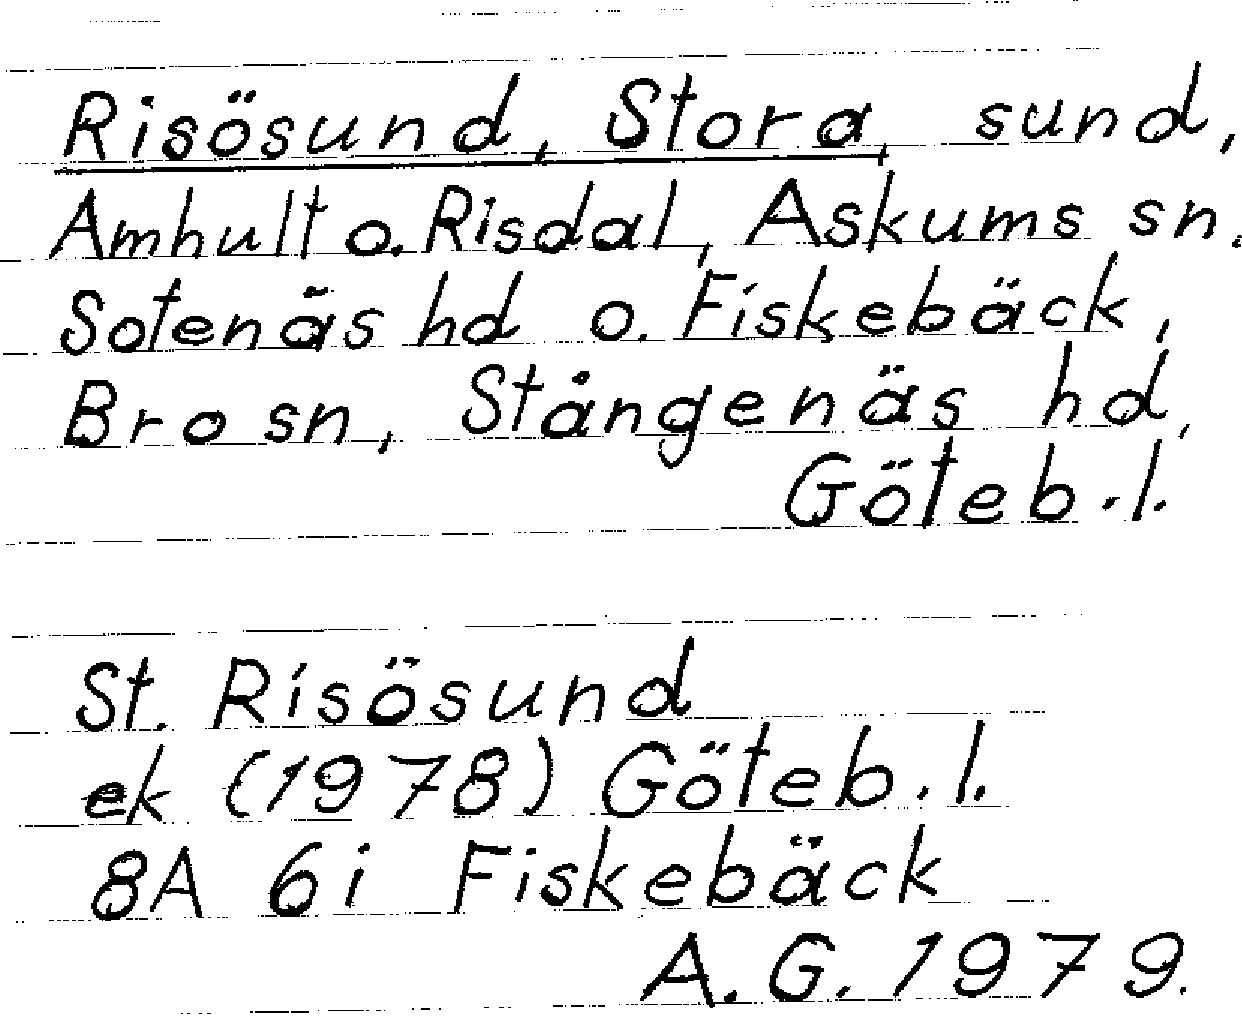 Risösund, Stora, sund,
Amhult o. Risdal, Askums sn.
Sotenäs hd o. Fiskebäck,
Bro sn, Stångenäs hd,
Göteb.l.
St. Risösund
ek (1978) Göteb.l.
8A 6i Fiskebäck
A.G. 1979.